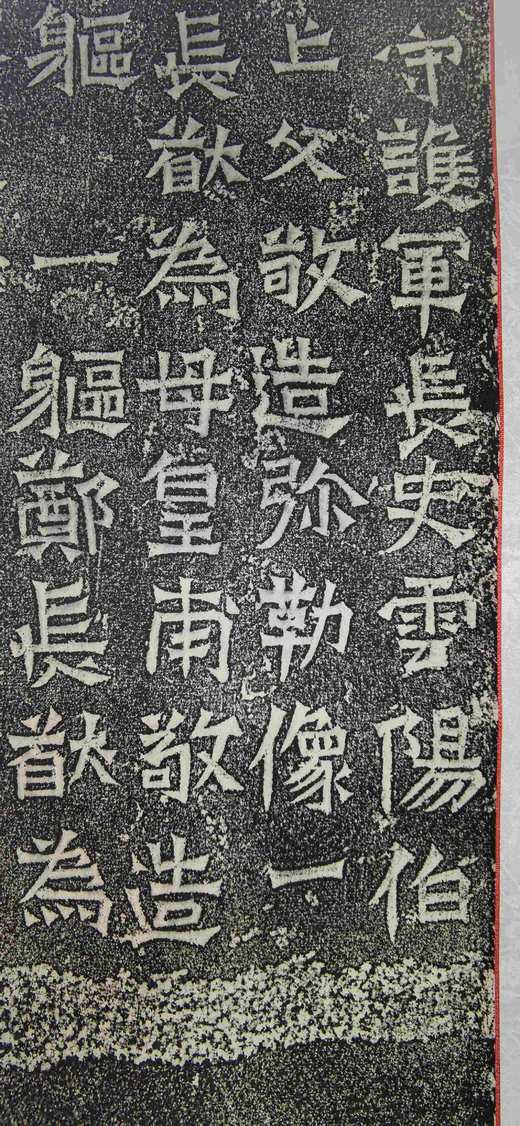 守護軍長史雲陽伯
上父敬造弥勒像一
長猷為母皇甫敬造
軀一軀鄭長猷為